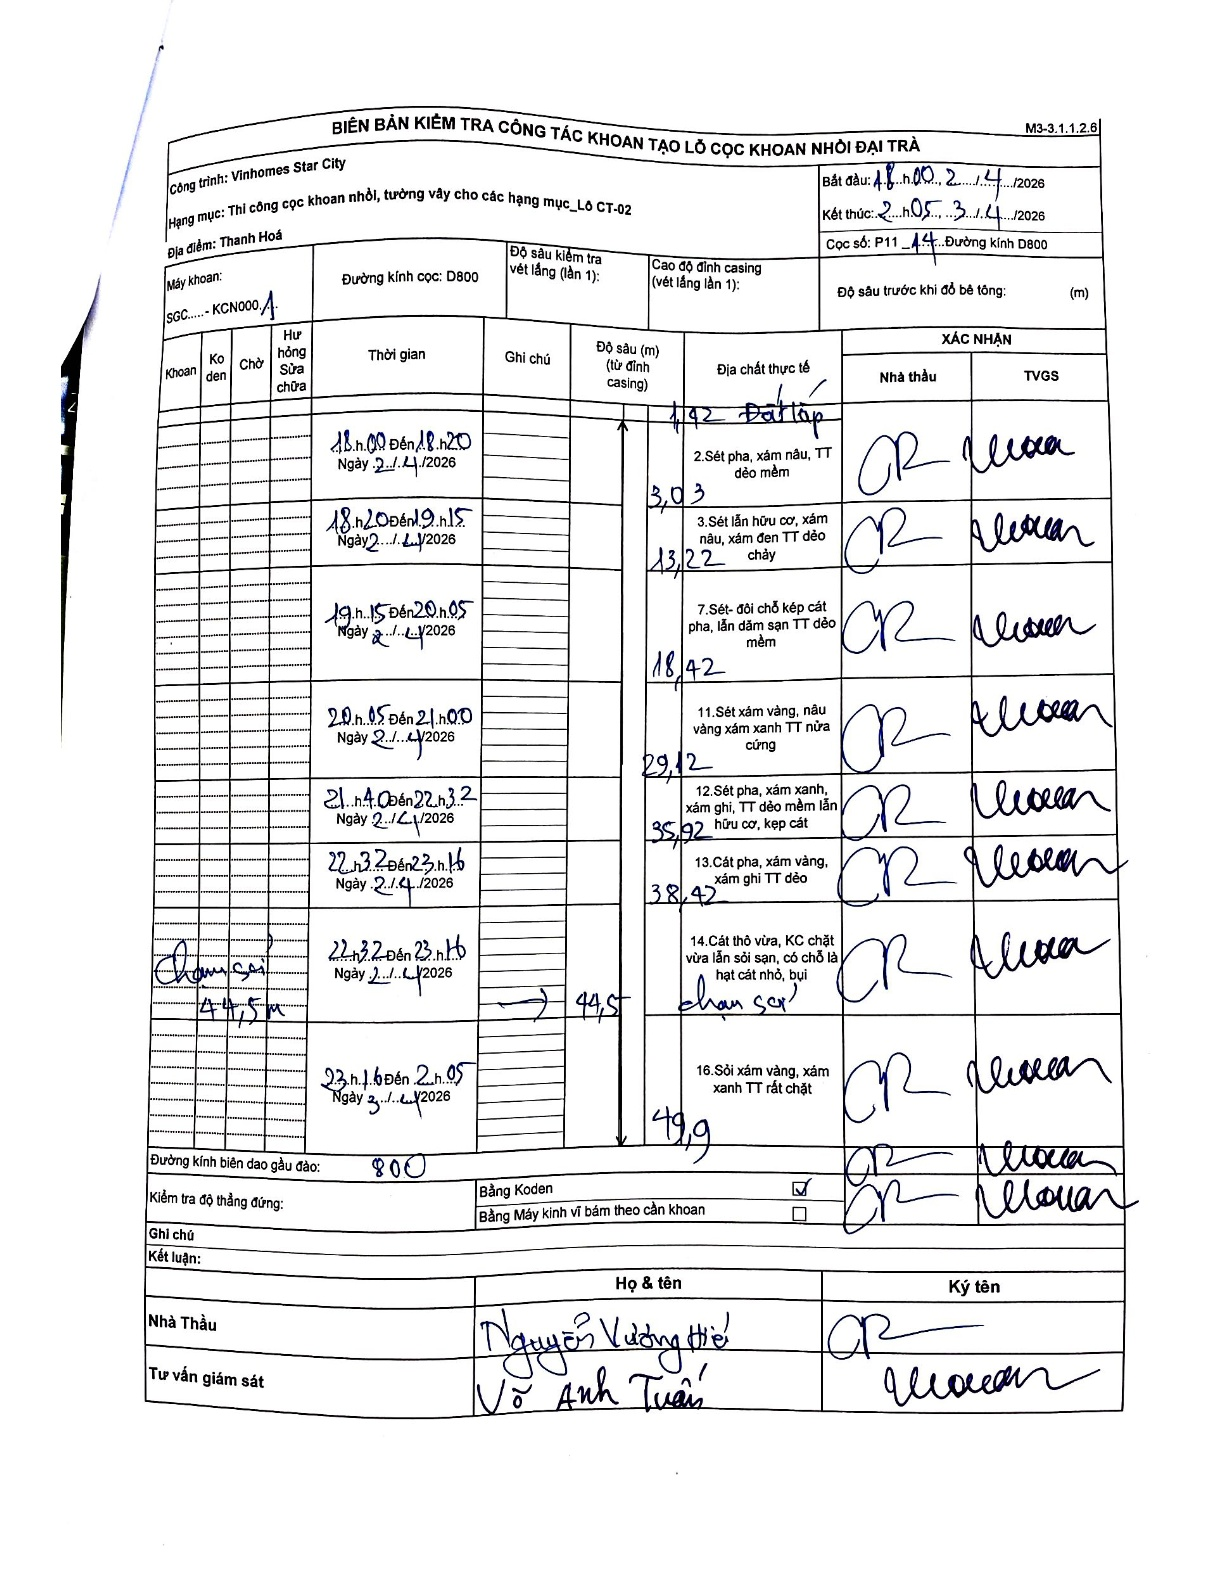 BIÊN BẢN KIỂM TRA CÔNG TÁC KHOAN TẠO LỖ CỌC KHOAN NHỒI ĐẠI TRÀ
M3-3.1.1.2.6
Công trình: Vinhomes Star City
Hạng mục: Thi công cọc khoan nhồi, tường vây cho các hạng mục_Lô CT-02
Địa điểm: Thanh Hoá
Bắt đầu: 18 h 00, 2 / 4 /2026
Kết thúc: 2 h 05, 3 / 4 /2026
Cọc số: P11 _ 14 Đường kính D800
Máy khoan:
SGC.....- KCN000.1
Đường kính cọc: D800
Độ sâu kiểm tra vét lắng (lần 1):
Cao độ đỉnh casing (vét lắng lần 1):
Độ sâu trước khi đổ bê tông: (m)
Khoan
Ko den
Chờ
Hư hỏng Sửa chữa
Thời gian
Ghi chú
Độ sâu (m) (từ đỉnh casing)
Địa chất thực tế
XÁC NHẬN
Nhà thầu
TVGS
1,42 Đất lấp
18.h.00 Đến 18.h20
Ngày 2/4/2026
2.Sét pha, xám nâu, TT dẻo mềm
3,03
18.h20 Đến 19.h.15
Ngày 2/4/2026
3.Sét lẫn hữu cơ, xám nâu, xám đen TT dẻo chảy
13,22
19.h.15 Đến 20.h.05
Ngày 2/4/2026
7.Sét- đôi chỗ kép cát pha, lẫn dăm sạn TT dẻo mềm
18,42
20.h.05 Đến 21.h00
Ngày 2/4/2026
11.Sét xám vàng, nâu vàng xám xanh TT nửa cứng
29,12
21.h.40 Đến 22.h32
Ngày 2/4/2026
12.Sét pha, xám xanh, xám ghi, TT dẻo mềm lẫn hữu cơ, kẹp cát
35,92
22.h32 Đến 23.h.16
Ngày 2/4/2026
13.Cát pha, xám vàng, xám ghi TT dẻo
38,42
Chạm sỏi
44,5m
22.h32 Đến 23.h16
Ngày 2/4/2026
44,5
14.Cát thô vừa, KC chặt vừa lẫn sỏi sạn, có chỗ là hạt cát nhỏ, bụi
chạm sỏi
23.h.16 Đến 2.h.05
Ngày 3/4/2026
16.Sỏi xám vàng, xám xanh TT rất chặt
49,9
Đường kính biên dao gầu đào: 800
Kiểm tra độ thẳng đứng:
Bằng Koden
Bằng Máy kinh vĩ bám theo cần khoan
Ghi chú
Kết luận:
Họ & tên
Ký tên
Nhà Thầu
Nguyễn Vương Hiế
Tư vấn giám sát
Võ Anh Tuấn